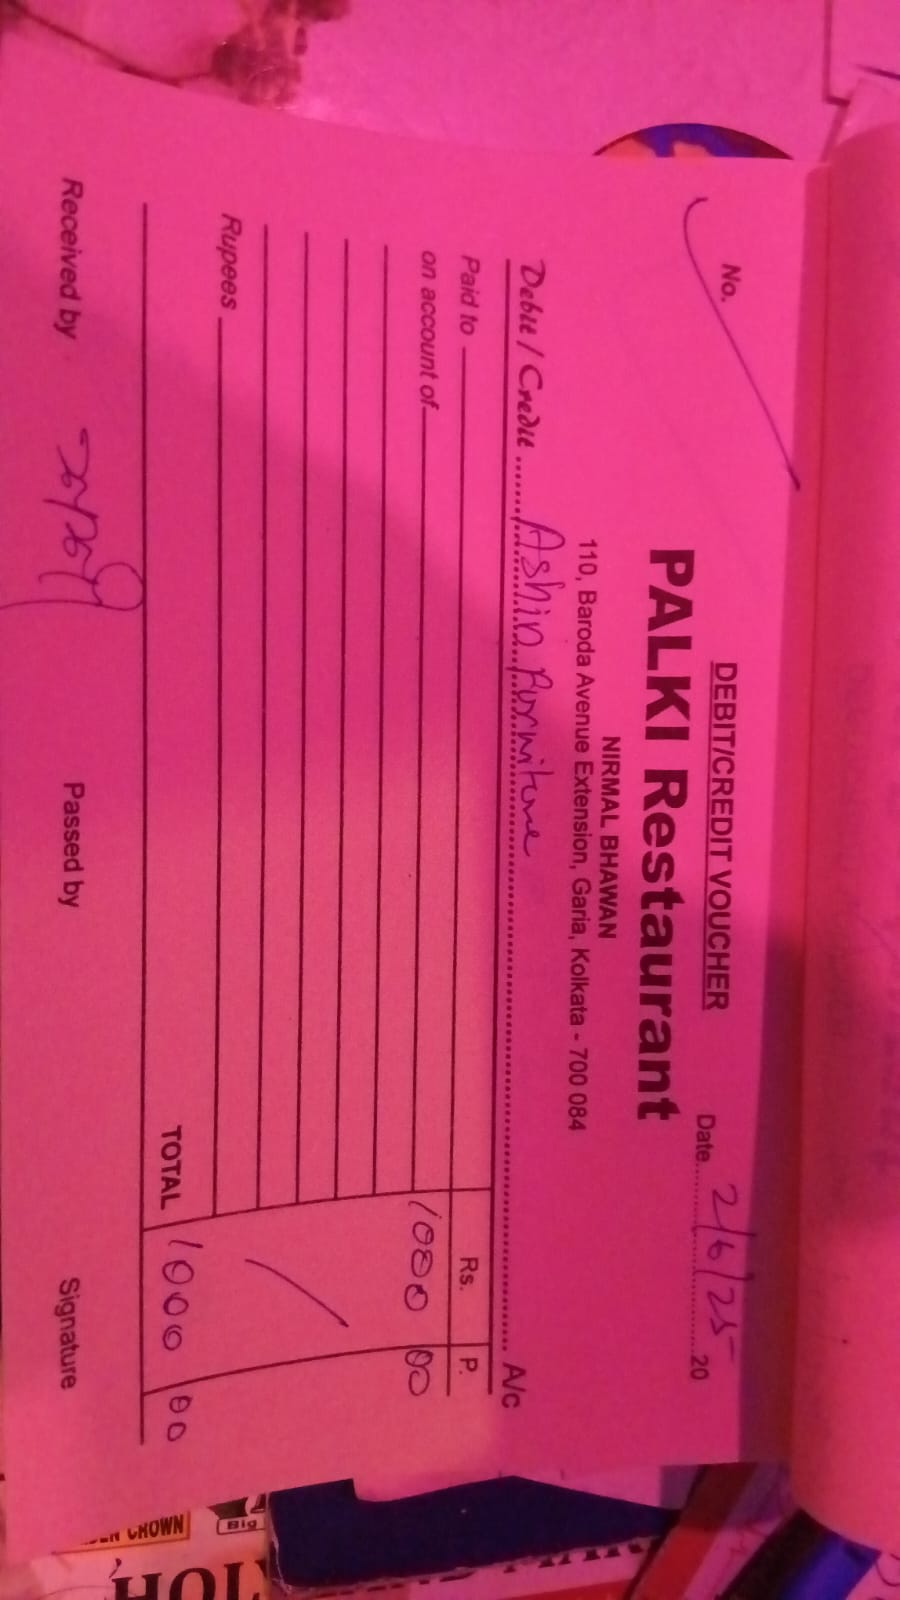 DEBIT/CREDIT VOUCHER
No.
Date 2/6/25 20
PALKI Restaurant
NIRMAL BHAWAN
110, Baroda Avenue Extension, Garia, Kolkata - 700 084
Debit / Credit Ashin Furniture A/c
Paid to Rs. P.
on account of 1000 00
Rupees
TOTAL 1000 00
Received by Passed by Signature
CROWN
Big